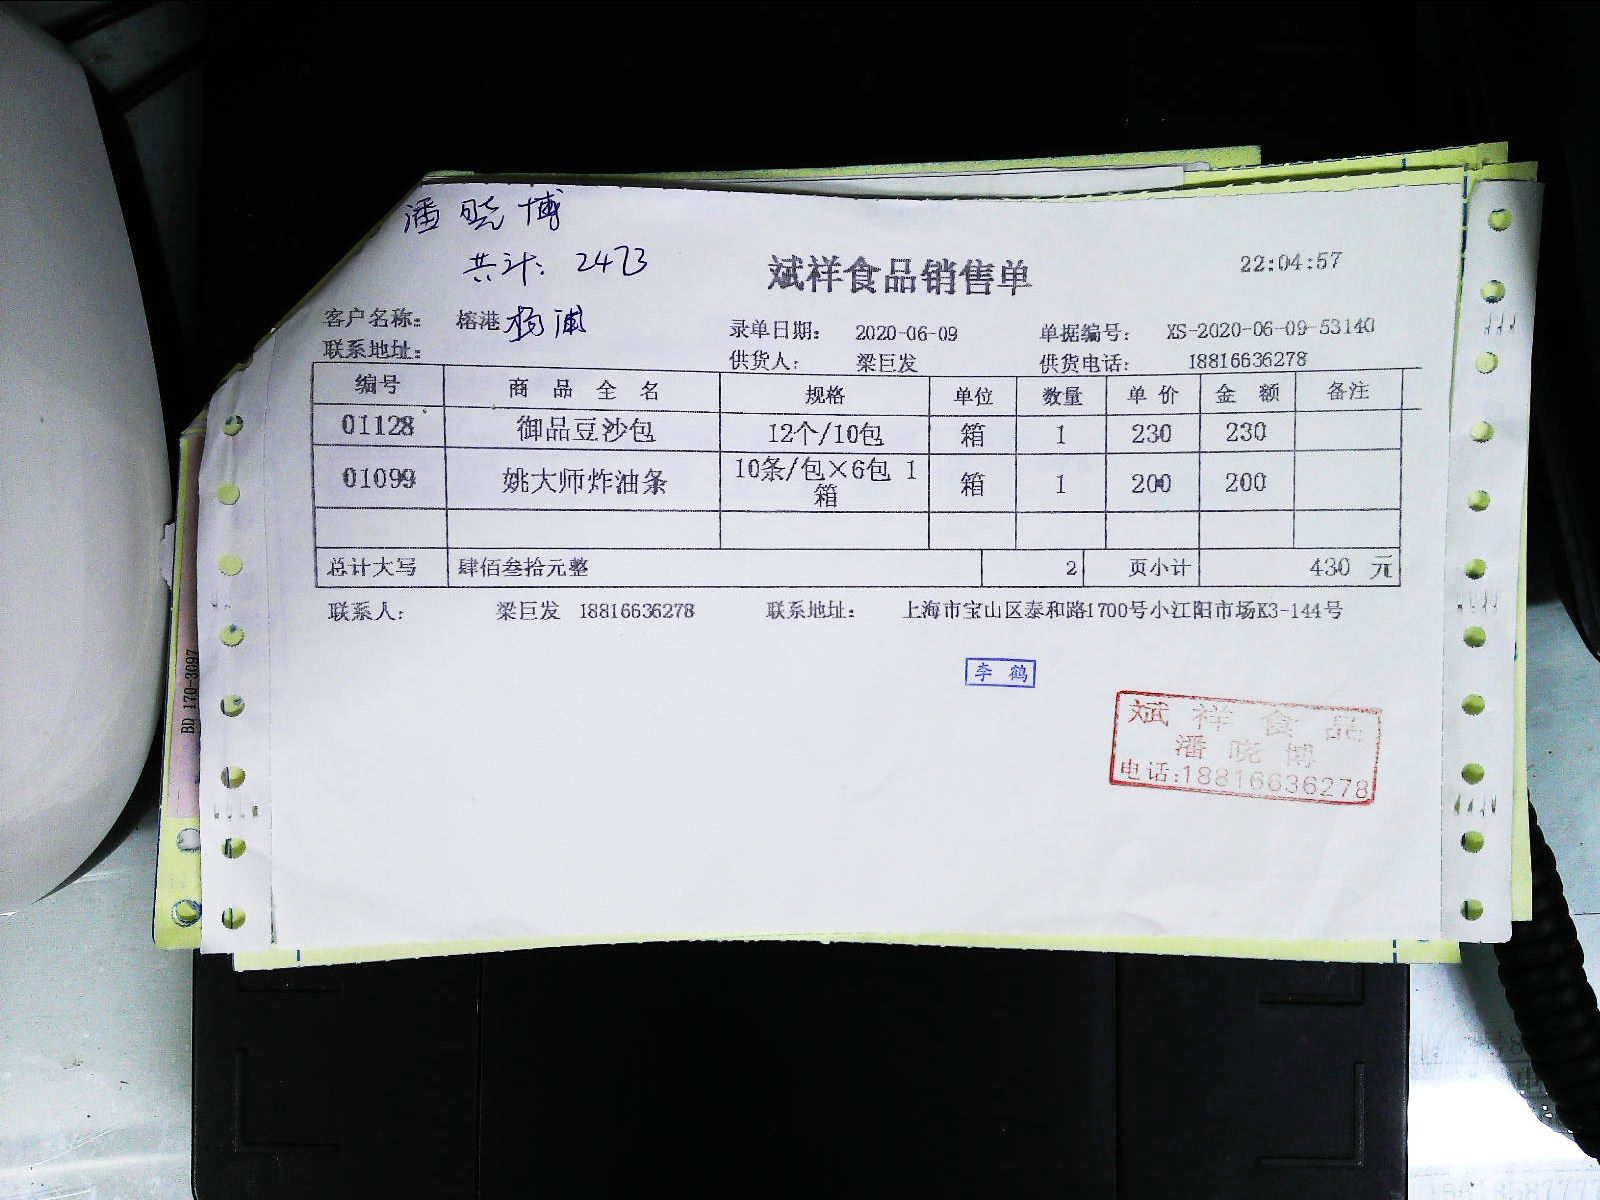 潘晓博
共计: 2473
斌祥食品销售单
22:04:57
客户名称: 榕港 杨浦
录单日期: 2020-06-09 单据编号: XS-2020-06-09-53140
联系地址:
供货人: 梁巨发 供货电话: 18816636278
编号 商品全名 规格 单位 数量 单价 金额 备注
01128 御品豆沙包 12个/10包 箱 1 230 230
01099 姚大师炸油条 10条/包×6包 1箱 箱 1 200 200
总计大写 肆佰叁拾元整 2 页小计 430 元
联系人: 梁巨发 18816636278 联系地址: 上海市宝山区泰和路1700号小江阳市场K3-144号
李鹤
斌祥食品
潘晓博
电话:18816636278
BD 170-3097